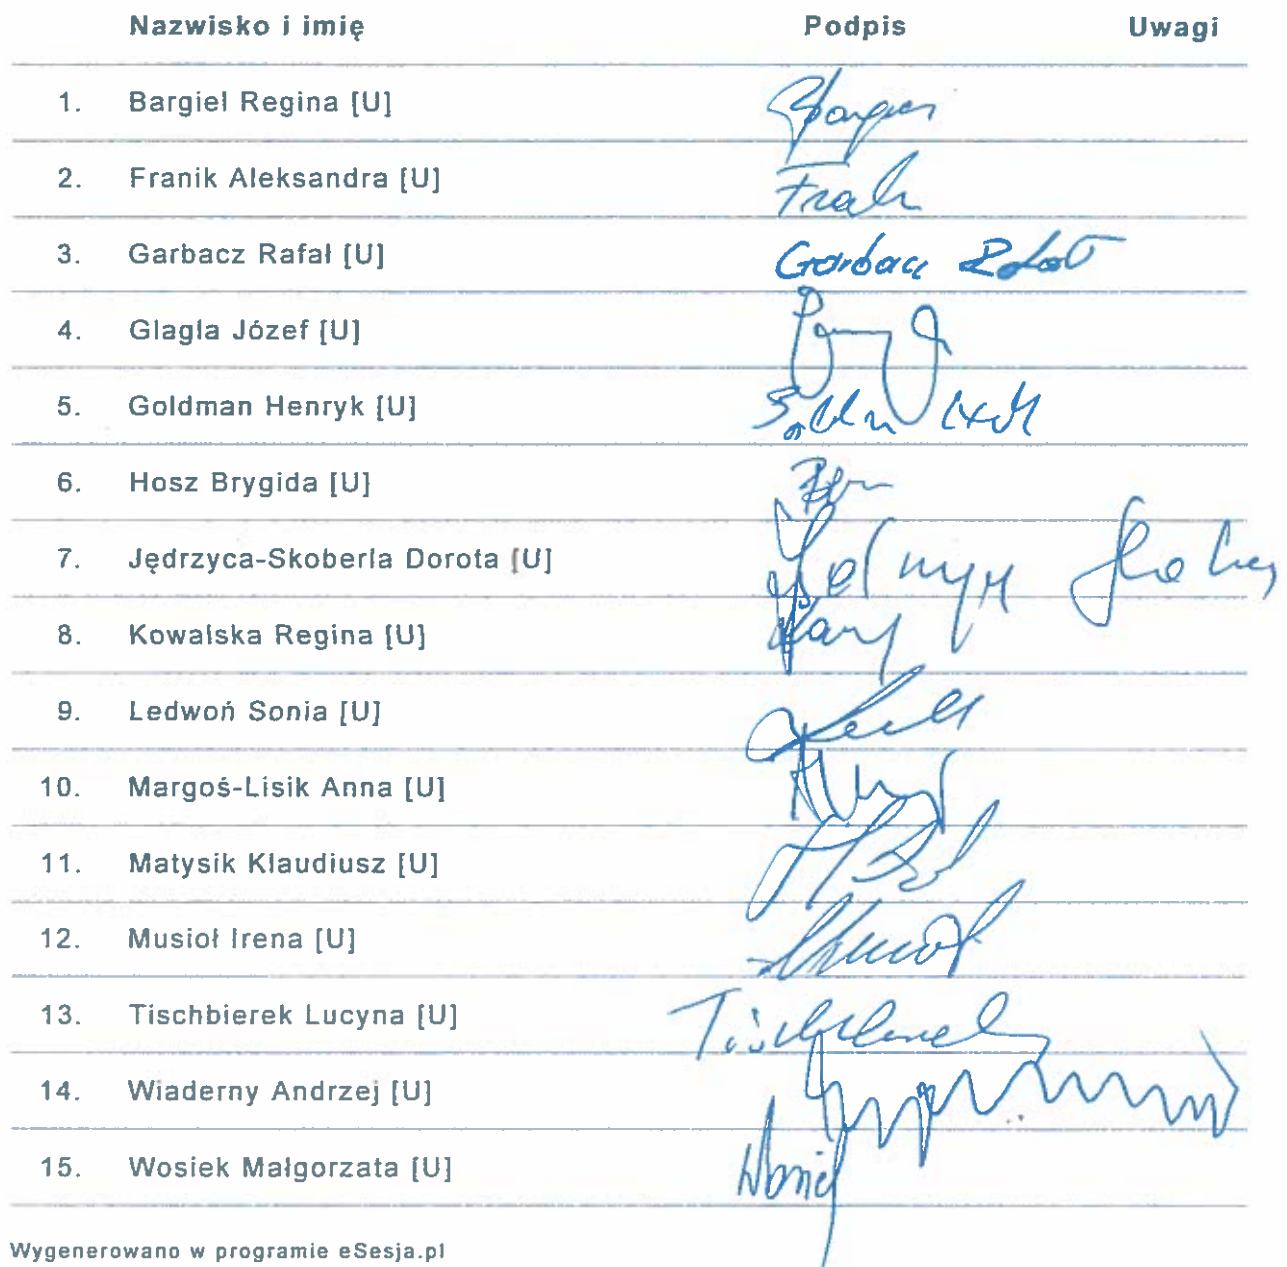 Nazwisko i imię Podpis Uwagi
1. Bargieł Regina [U]
2. Franik Aleksandra [U]
3. Garbacz Rafał [U] Garbacz Rafał
4. Glagla Józef [U]
5. Goldman Henryk [U]
6. Hosz Brygida [U]
7. Jędrzyca-Skoberla Dorota [U]
8. Kowalska Regina [U]
9. Ledwoń Sonia [U]
10. Margoś-Lisik Anna [U]
11. Matysik Klaudiusz [U]
12. Musioł Irena [U]
13. Tischbierek Lucyna [U] Tischbierek
14. Wiaderny Andrzej [U]
15. Wosiek Małgorzata [U]
Wygenerowano w programie eSesja.pl